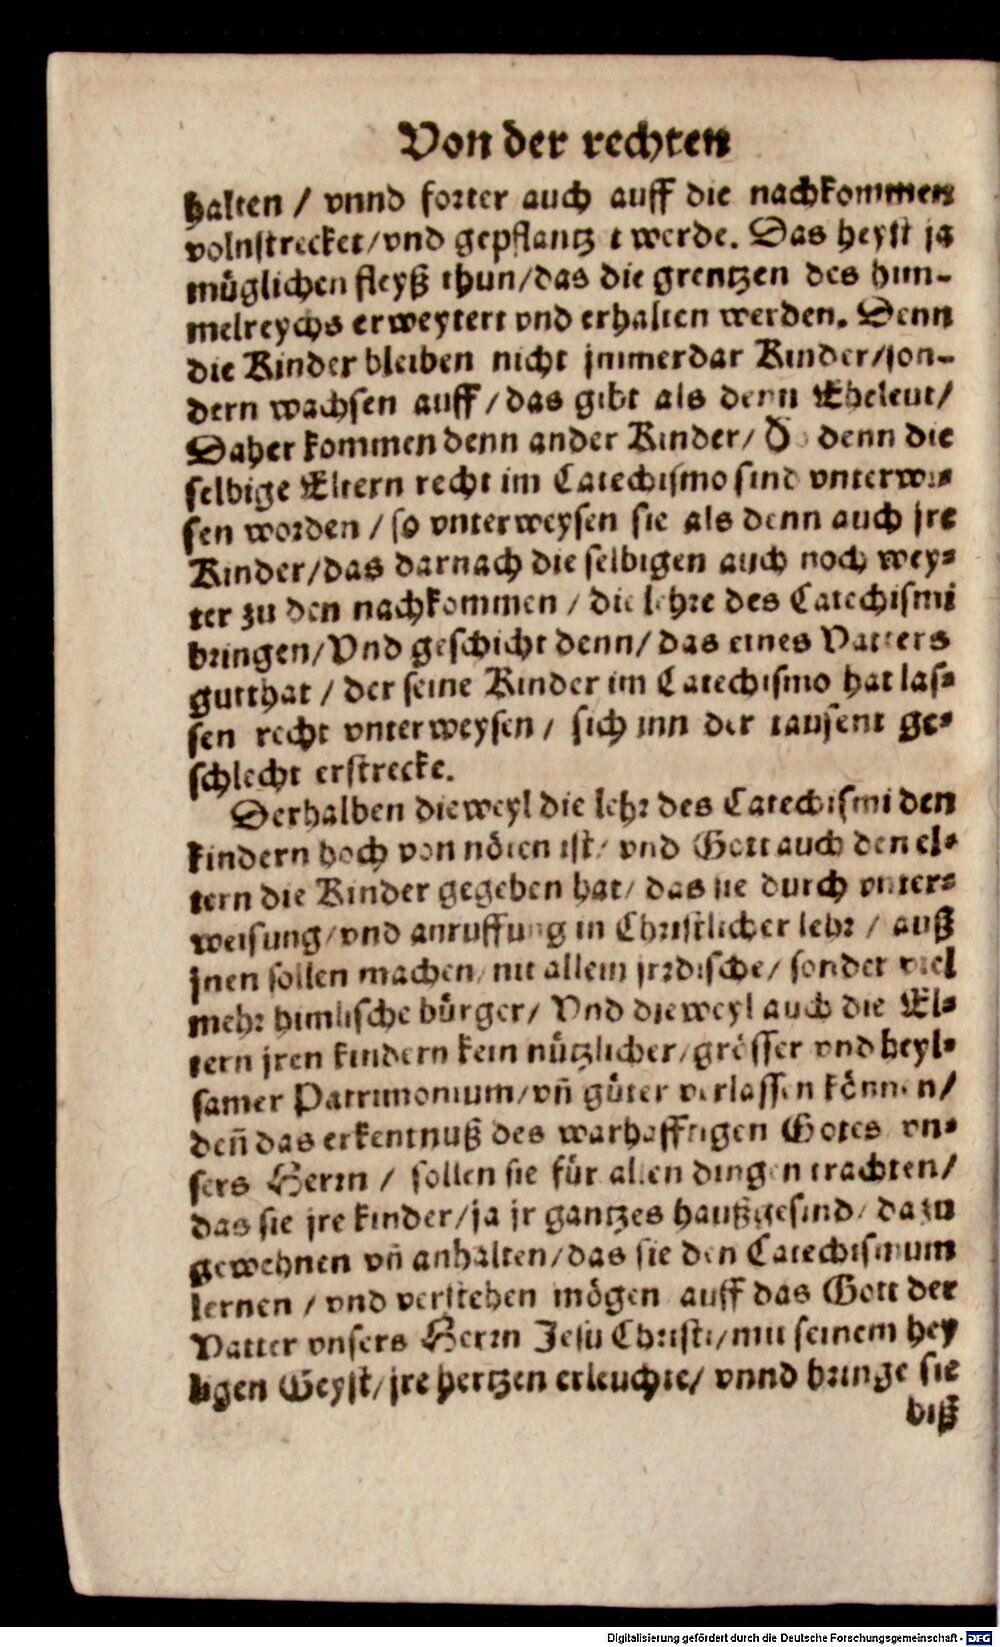 Von der rechten
halten / vnnd forter auch auff die nachkommen
volnstrecket/vnd gepflantz t werde. Das heyst ja
müglichen fleyß thun/das die grentzen des him-
melreychs erweytert vnd erhalten werden. Denn
die Kinder bleiben nicht jmmerdar Kinder/son-
dern wachsen auff/das gibt als denn Eheleut/
Daher kommen denn ander Kinder/ denn die
selbige Eltern recht im Catechismo sind vnterwi-
sen worden / so vnterweysen sie als denn auch jre
Kinder/das darnach die selbigen auch noch wey-
ter zu den nachkommen / die lehre des Catechismi
bringen/Vnd geschicht denn/ das eines Vatters
gutthat / der seine Kinder im Catechismo hat las-
sen recht vnterweysen / sich inn der tausent ge-
schlecht erstrecke.
Derhalben dieweyl die lehr des Catechismi den
kindern hoch von nöten ist/ vnd Gott auch den el-
tern die Kinder gegeben hat/ das sie durch vnter-
weisung/vnd anruffung in Christlicher lehr / auß
jnen sollen machen/ nit allein jrrdische/ sonder viel
mehr himlische bürger/ Vnd dieweyl auch die El-
tern jren kindern kein nützlicher/grösser vnd heyl-
samer Patrimonium/vñ güter verlassen können/
deñ das erkentnuß des warhafftigen Gotes vn-
sers Herrn / sollen sie für allen dingen trachten/
das sie jre kinder/ja jr gantzes haußgesind/ dazu
gewehnen vñ anhalten/das sie den Catechismum
lernen / vnd verstehen mögen auff das Gott der
Vatter vnsers Herrn Jesu Christi/mit seinem hey
ligen Geyst/jre hertzen erleuchte/ vnnd bringe sie
biß
Digitalisierung gefördert durch die Deutsche Forschungsgemeinschaft - DFG